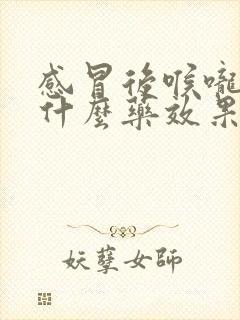 感冒後喉嚨
什麼藥效果
妖孽女師